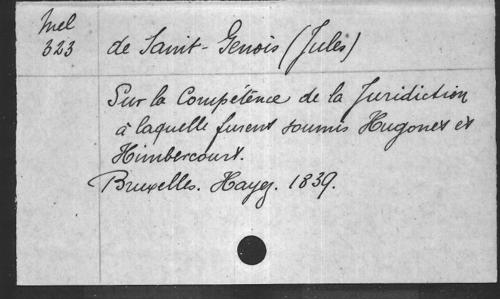 Mel
323
de Saint-Genois (Jules)
Sur la Compétence de la Juridiction
à laquelle furent soumis Hugonet et
Himbercourt.
Bruxelles. Hayez. 1839.